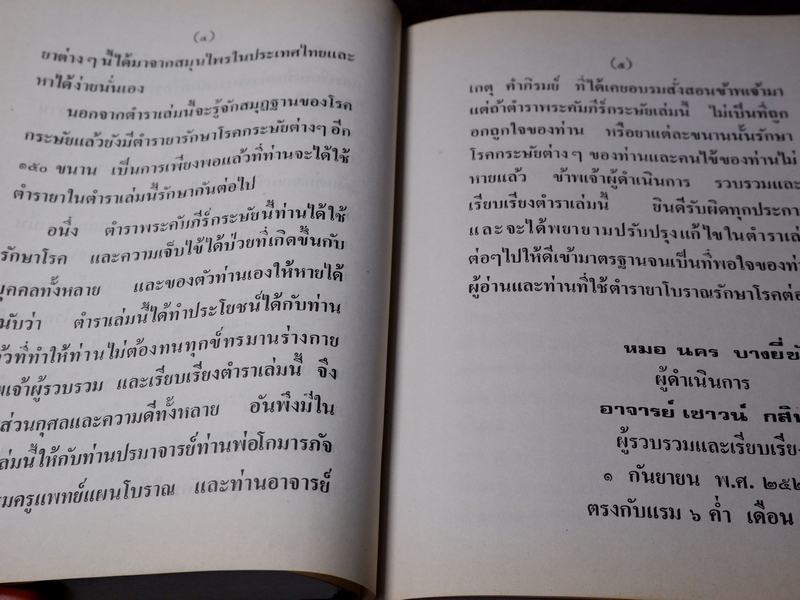 (๔)
ยาต่าง ๆ นี้ได้มาจากสมุนไพรในประเทศไทยและ
หาได้ง่ายนั่นเอง
นอกจากตำราเล่มนี้จะรู้จักสมุฏฐานของโรค
กระษัยแล้วยังมีตำรายารักษาโรคกระษัยต่างๆ อีก
๑๕๐ ขนาน เป็นการเพียงพอแล้วที่ท่านจะได้ใช้
ตำรายาในตำราเล่มนี้รักษากันต่อไป
อนึ่ง ตำราพระคัมภีร์กระษัยนี้ท่านได้ใช้
รักษาโรค และความเจ็บไข้ได้ป่วยที่เกิดขึ้นกับ
บุคคลทั้งหลาย และของตัวท่านเองให้หายได้
นับว่า ตำราเล่มนี้ได้ทำประโยชน์ได้กับท่าน
ที่ทำให้ท่านไม่ต้องทนทุกข์ทรมานร่างกาย
ผู้รวบรวม และเรียบเรียงตำราเล่มนี้ จึง
ส่วนกุศลและความดีทั้งหลาย อันพึงมีใน
เล่มนี้ให้กับท่านปรมาจารย์ท่านพ่อโกมารภัจ
ครูแพทย์แผนโบราณ และท่านอาจารย์
(๕)
เกตุ คำภิรมย์ ที่ได้เคยอบรมสั่งสอนข้าพเจ้ามา
แต่ถ้าตำราพระคัมภีร์กระษัยเล่มนี้ ไม่เป็นที่ถูก
อกถูกใจของท่าน หรือยาแต่ละขนานนั้นรักษา
โรคกระษัยต่าง ๆ ของท่านและคนไข้ของท่านไม่
หายแล้ว ข้าพเจ้าผู้ดำเนินการ รวบรวมและ
เรียบเรียงตำราเล่มนี้ ยินดีรับผิดทุกประกา
และจะได้พยายามปรับปรุงแก้ไขในตำราเล่
ต่อๆไปให้ดีเข้ามาตรฐานจนเป็นที่พอใจของท่
ผู้อ่านและท่านที่ใช้ตำรายาโบราณรักษาโรคต่อ
หมอ นคร บางยี่ขั
ผู้ดำเนินการ
อาจารย์ เชาวน์ กสิ
ผู้รวบรวมและเรียบเรีย
๑ กันยายน พ.ศ. ๒๕๒
ตรงกับแรม ๖ ค่ำ เดือน